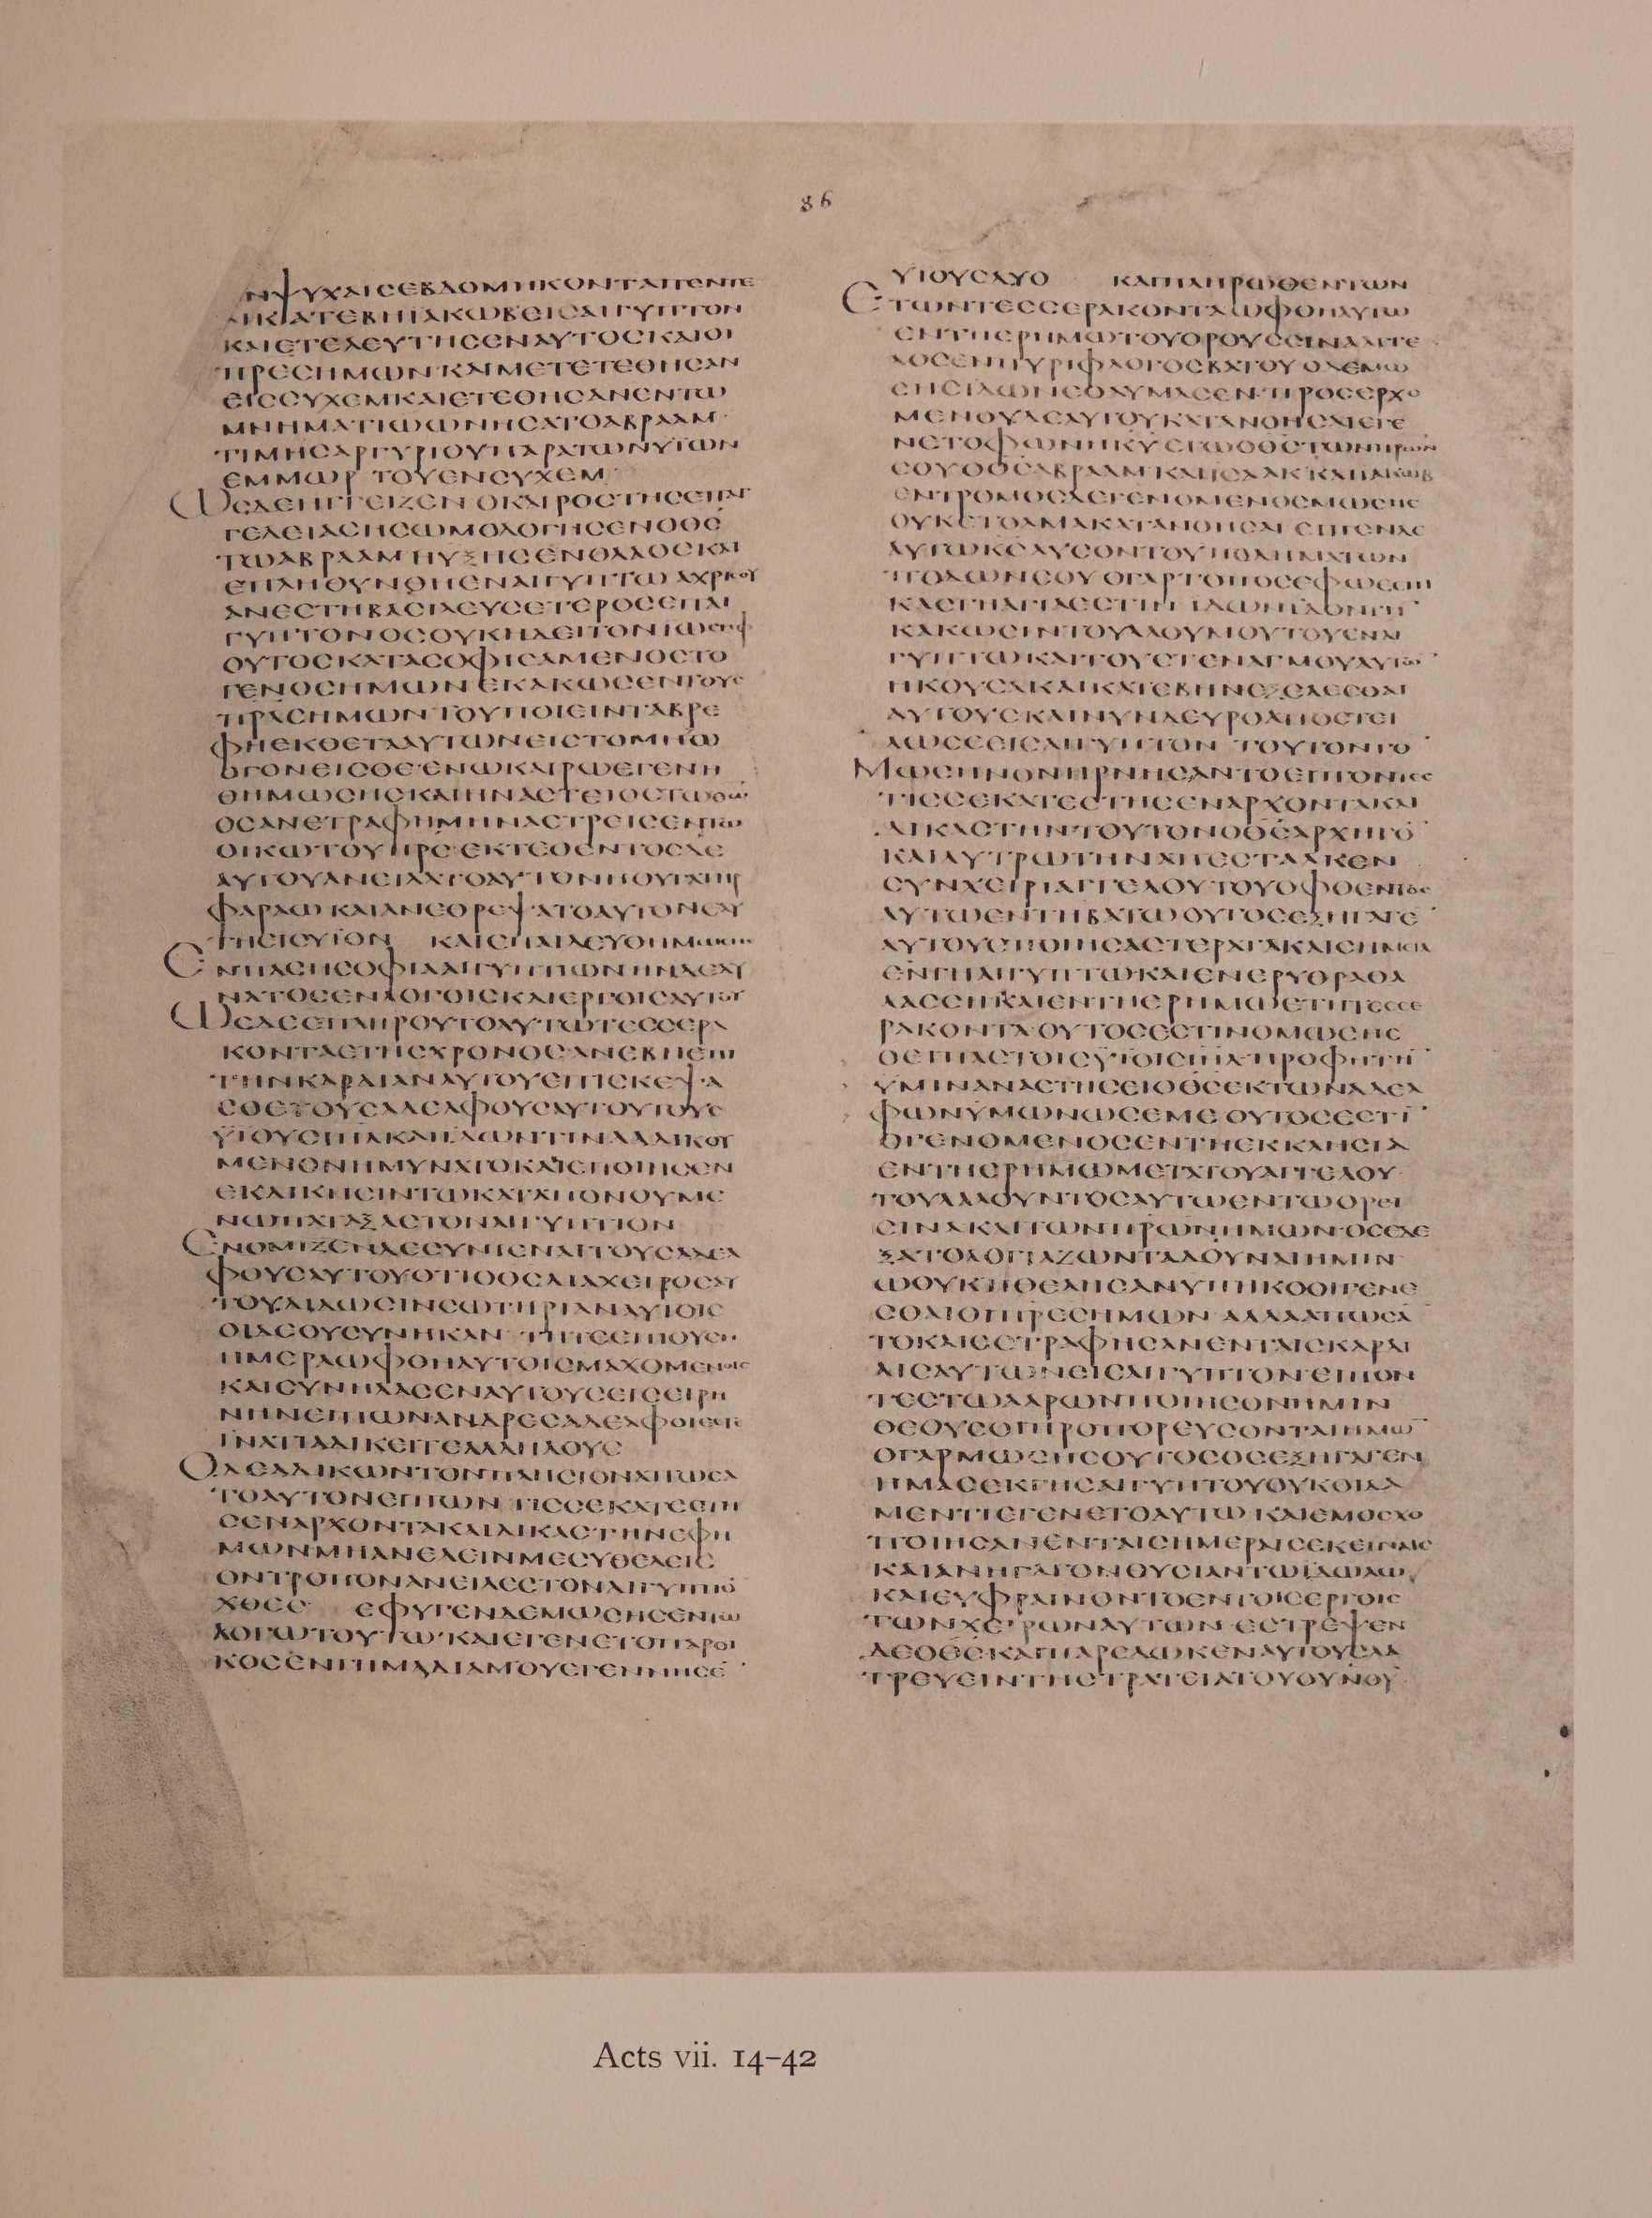 86
ΕΝΨΥΧΑΙСΕΒΔΟΜΗΚΟΝΤΑΠΕΝΤΕ
ΚΑΤΕΒΗΙΑΚΩΒΕΙСΑΙΓΥΠΤΟΝ
ΚΑΙΕΤΕΛΕΥΤΗСΕΝΑΥΤΟСΚΑΙΟΙ
ΠΡΕСΗΜΩΝΚΑΙΜΕΤΕΤΕΘΗСΑΝ
ΕΙССΥΧΕΜΚΑΙΕΤΕΘΗСΑΝΕΝΤΩ
ΜΝΗΜΑΤΙΩΩΝΗСΑΤΟΑΒΡΑΑΜ
ΤΙΜΗСΑΡΓΥΡΙΟΥΠΑΡΑΤΩΝΥΙΩΝ
ΕΜΜΩΡ ΤΟΥΕΝСΥΧΕΜ
ΩСΔΕΗΓΓΕΙΖΕΝΟΚΑΙΡΟСΤΗСΕΠΑΓ
ΓΕΛΕΙΑСΗСΩΜΟΛΟΓΗСΕΝΟΘС
ΤΩΑΒΡΑΑΜΗΥΞΗСΕΝΟΛΑΟСΚΑΙ
ΕΠΛΗΘΥΝΘΗΕΝΑΙΓΥΠΤΩΑΧΡΙСΟΥ
ΑΝΕСΤΗΒΑСΙΛΕΥСΕΤΕΡΟСΕΠΑΙ
ΓΥΠΤΟΝΟСΟΥΚΗΔΕΙΤΟΝΙΩСΗΦ
ΟΥΤΟСΚΑΤΑСΟΦΙСΑΜΕΝΟСΤΟ
ΓΕΝΟСΗΜΩΝΕΚΑΚΩСΕΝΤΟΥС
ΠΡΑСΗΜΩΝΤΟΥΠΟΙΕΙΝΤΑΒΡΕ
ΦΗΕΚΘΕΤΑΑΥΤΩΝΕΙСΤΟΜΗΖΩ
ΟΓΟΝΕΙСΘΕΕΝΩΚΑΙΡΩΕΓΕΝΝ
ΘΗΜΩСΗСΚΑΙΗΝΑСΤΕΙΟСΤΩΘΩ
ΟСΑΝΕΤΡΑΦΗΜΗΝΑСΤΡΕΙСΕΝΤΩ
ΟΙΚΩΤΟΥΠΡС ΕΚΤΕΘΕΝΤΟСΔΕ
ΑΥΤΟΥΑΝΕΙΛΑΤΟΑΥΤΟΝΗΘΥΓΑΤΗΡ
ΦΑΡΑΩΚΑΙΑΝΕΘΡΕΨΑΤΟΑΥΤΟΝΕΑΥ
ΤΗΕΙСΥΙΟΝ ΚΑΙΕΠΑΙΔΕΥΘΗΜΩСΗС
ΕΝΠΑСΗСΟΦΙΑΑΙΓΥΠΤΙΩΝΗΝΔΕΔΥ
ΝΑΤΟСΕΝΛΟΓΟΙСΚΑΙΕΡΓΟΙСΑΥΤΟΥ
ΩСΔΕΕΠΛΗΡΟΥΤΟΑΥΤΩΤΕССΕΡΑ
ΚΟΝΤΑΕΤΗСΧΡΟΝΟСΑΝΕΒΗΕΠΙ
ΤΗΝΚΑΡΔΙΑΝΑΥΤΟΥΕΠΙСΚΕΨΑ
СΘΕΤΟΥСΑΔΕΛΦΟΥСΑΥΤΟΥΤΟΥС
ΥΙΟΥСΙΗΛΚΑΙΙΔΩΝΤΙΝΑΑΔΙΚΟΥ
ΜΕΝΟΝΗΜΥΝΑΤΟΚΑΙΕΠΟΙΗСΕΝ
ΕΚΔΙΚΗСΙΝΤΩΚΑΤΑΠΟΝΟΥΜΕ
ΝΩΠΑΤΑΞΑСΤΟΝΑΙΓΥΠΤΙΟΝ
ΕΝΟΜΙΖΕΝΔΕСΥΝΙΕΝΑΙΤΟΥСΑΔΕΛ
ΦΟΥСΑΥΤΟΥΟΤΙΟΘСΔΙΑΧΕΙΡΟСΑΥ
ΤΟΥΔΙΔΩСΙΝСΩΤΗΡΙΑΝΑΥΤΟΙС
ΟΙΔΕΟΥСΥΝΗΚΑΝ ΤΗΤΕΕΠΙΟΥСΗ
ΗΜΕΡΑΩΦΘΗΑΥΤΟΙСΜΑΧΟΜΕΝΟΙС
ΚΑΙСΥΝΗΛΑСΕΝΑΥΤΟΥСΕΙСΕΙΡΗ
ΝΗΝΕΙΠΩΝΑΝΔΡΕСΑΔΕΛΦΟΙΕСΤΕ
ΙΝΑΤΙΑΔΙΚΕΙΤΕΑΛΛΗΛΟΥС
ΟΔΕΑΔΙΚΩΝΤΟΝΠΛΗСΙΟΝΑΠΩСΑ
ΤΟΑΥΤΟΝΕΙΠΩΝ ΤΙССΕΚΑΤΕСΤΗ
СΕΝΑΡΧΟΝΤΑΚΑΙΔΙΚΑСΤΗΝΕΦΗ
ΜΩΝΜΗΑΝΕΛΕΙΝΜΕСΥΘΕΛΕΙС
ΟΝΤΡΟΠΟΝΑΝΕΙΛΕСΤΟΝΑΙΓΥΠΤΙΟ
ΧΘΕС ΕΦΥΓΕΝΔΕΜΩСΗСΕΝΤΩ
ΛΟΓΩΤΟΥΤΩΚΑΙΕΓΕΝΕΤΟΠΑΡΟΙ
ΚΟСΕΝΓΗΜΑΔΙΑΜΟΥΕΓΕΝΝΗСΕ
ΥΙΟΥСΔΥΟ ΚΑΙΠΛΗΡΩΘΕΝΤΩΝ
ΕΤΩΝΤΕССΕΡΑΚΟΝΤΑΩΦΘΗΑΥΤΩ
ΕΝΤΗΕΡΗΜΩΤΟΥΟΡΟΥССΙΝΑΑΓΓΕ
ΛΟСΕΝΠΥΡΙΦΛΟΓΟСΒΑΤΟΥΟΔΕΜΩ
СΗСΙΔΩΝΕΘΑΥΜΑСΕΝΠΡΟСΕΡΧΟ
ΜΕΝΟΥΔΕΑΥΤΟΥΚΑΤΑΝΟΗСΑΙΕΓΕ
ΝΕΤΟΦΩΝΗΚΥΕΓΩΟΘСΤΩΝΠΡΩΝ
СΟΥΟΘСΑΒΡΑΑΜΚΑΙΙСΑΑΚΚΑΙΙΑΚΩΒ
ΕΝΤΡΟΜΟСΔΕΓΕΝΟΜΕΝΟСΜΩСΗС
ΟΥΚΕΤΟΛΜΑΚΑΤΑΝΟΗСΑΙ ΕΙΠΕΝΔΕ
ΑΥΤΩΚСΛΥСΟΝΤΟΥΠΟΔΗΜΑΤΩΝ
ΠΟΔΩΝСΟΥΟΓΑΡΤΟΠΟСΕΦΩΕСΤΗ
ΚΑСΓΗΑΓΙΑΕСΤΙΝ ΙΔΩΝΙΔΟΝΤΗ
ΚΑΚΩСΙΝΤΟΥΛΑΟΥΜΟΥΤΟΥΕΝΑΙ
ΓΥΠΤΩΚΑΙΤΟΥСΤΕΝΑΓΜΟΥΑΥΤΩ
ΗΚΟΥСΑΚΑΙΚΑΤΕΒΗΝΕΞΕΛΕСΘΑΙ
ΑΥΤΟΥСΚΑΙΝΥΝΔΕΥΡΟΑΠΟСΤΕΙ
ΛΩСΕΕΙСΑΙΓΥΠΤΟΝ ΤΟΥΤΟΝΤΟ
ΜΩСΗΝΟΝΗΡΝΗСΑΝΤΟΕΙΠΟΝΤΕС
ΤΙССΕΚΑΤΕСΤΗСΕΝΑΡΧΟΝΤΑΚΑΙ
ΔΙΚΑСΤΗΝΤΟΥΤΟΝΟΘСΑΡΧΗΓΟ
ΚΑΙΛΥΤΡΩΤΗΝΑΠΕСΤΑΛΚΕΝ
СΥΝΧΕΙΡΙΑΓΓΕΛΟΥΤΟΥΟΦΘΕΝΤΟС
ΑΥΤΩΕΝΤΗΒΑΤΩΟΥΤΟСΕΞΗΓΑΓΕ
ΑΥΤΟΥСΠΟΙΗСΑСΤΕΡΑΤΑΚΑΙСΗΜΕΙΑ
ΕΝΓΗΑΙΓΥΠΤΩΚΑΙΕΝΕΡΥΘΡΑΘΑ
ΛΑССΗΚΑΙΕΝΤΗΕΡΗΜΩΕΤΗΤΕССΕ
ΡΑΚΟΝΤΑΟΥΤΟСΕСΤΙΝΟΜΩСΗС
ΟΕΙΠΑСΤΟΙСΥΙΟΙСΙΗΛΠΡΟΦΗΤΗ
ΥΜΙΝΑΝΑСΤΗСΕΙΟΘСΕΚΤΩΝΑΔΕΛ
ΦΩΝΥΜΩΝΩСΕΜΕΟΥΤΟСΕСΤΙ
ΟΓΕΝΟΜΕΝΟСΕΝΤΗΕΚΚΛΗСΙΑ
ΕΝΤΗΕΡΗΜΩΜΕΤΑΤΟΥΑΓΓΕΛΟΥ
ΤΟΥΛΑΛΟΥΝΤΟСΑΥΤΩΕΝΤΩΟΡΕΙ
СΙΝΑΚΑΙΤΩΝΠΡΩΝΗΜΩΝΟСΕΔΕ
ΞΑΤΟΛΟΓΙΑΖΩΝΤΑΔΟΥΝΑΙΗΜΙΝ
ΩΟΥΚΗΘΕΛΗСΑΝΥΠΗΚΟΟΙΓΕΝΕ
СΘΑΙΟΙΠΡΕСΗΜΩΝ ΑΛΛΑΑΠΩСΑ
ΤΟΚΑΙΕСΤΡΑΦΗСΑΝΕΝΤΑΙСΚΑΡΔΙ
ΑΙСΑΥΤΩΝΕΙСΑΙΓΥΠΤΟΝΕΙΠΟΝ
ΤΕСΤΩΑΑΡΩΝΠΟΙΗСΟΝΗΜΙΝ
ΘΕΟΥСΟΙΠΡΟΠΟΡΕΥСΟΝΤΑΙΗΜΩ
ΟΓΑΡΜΩСΗСΟΥΤΟСΟСΕΞΗΓΑΓΕΝ
ΗΜΑСΕΚΓΗСΑΙΓΥΠΤΟΥΟΥΚΟΙΔΑ
ΜΕΝΤΙΕΓΕΝΕΤΟΑΥΤΩΚΑΙΕΜΟСΧΟ
ΠΟΙΗСΑΝΕΝΤΑΙСΗΜΕΡΑΙСΕΚΕΙΝΑΙС
ΚΑΙΑΝΗΓΑΓΟΝΘΥСΙΑΝΤΩΙΔΩΛΩ
ΚΑΙΕΥΦΡΑΙΝΟΝΤΟΕΝΤΟΙСΕΡΓΟΙС
ΤΩΝΧΕΙΡΩΝΑΥΤΩΝ ΕСΤΡΕΨΕΝ
ΔΕΟΘСΚΑΙΠΑΡΕΔΩΚΕΝΑΥΤΟΥСΛΑ
ΤΡΕΥΕΙΝΤΗСΤΡΑΤΕΙΑΤΟΥΟΥΝΟΥ
Acts vii. 14–42